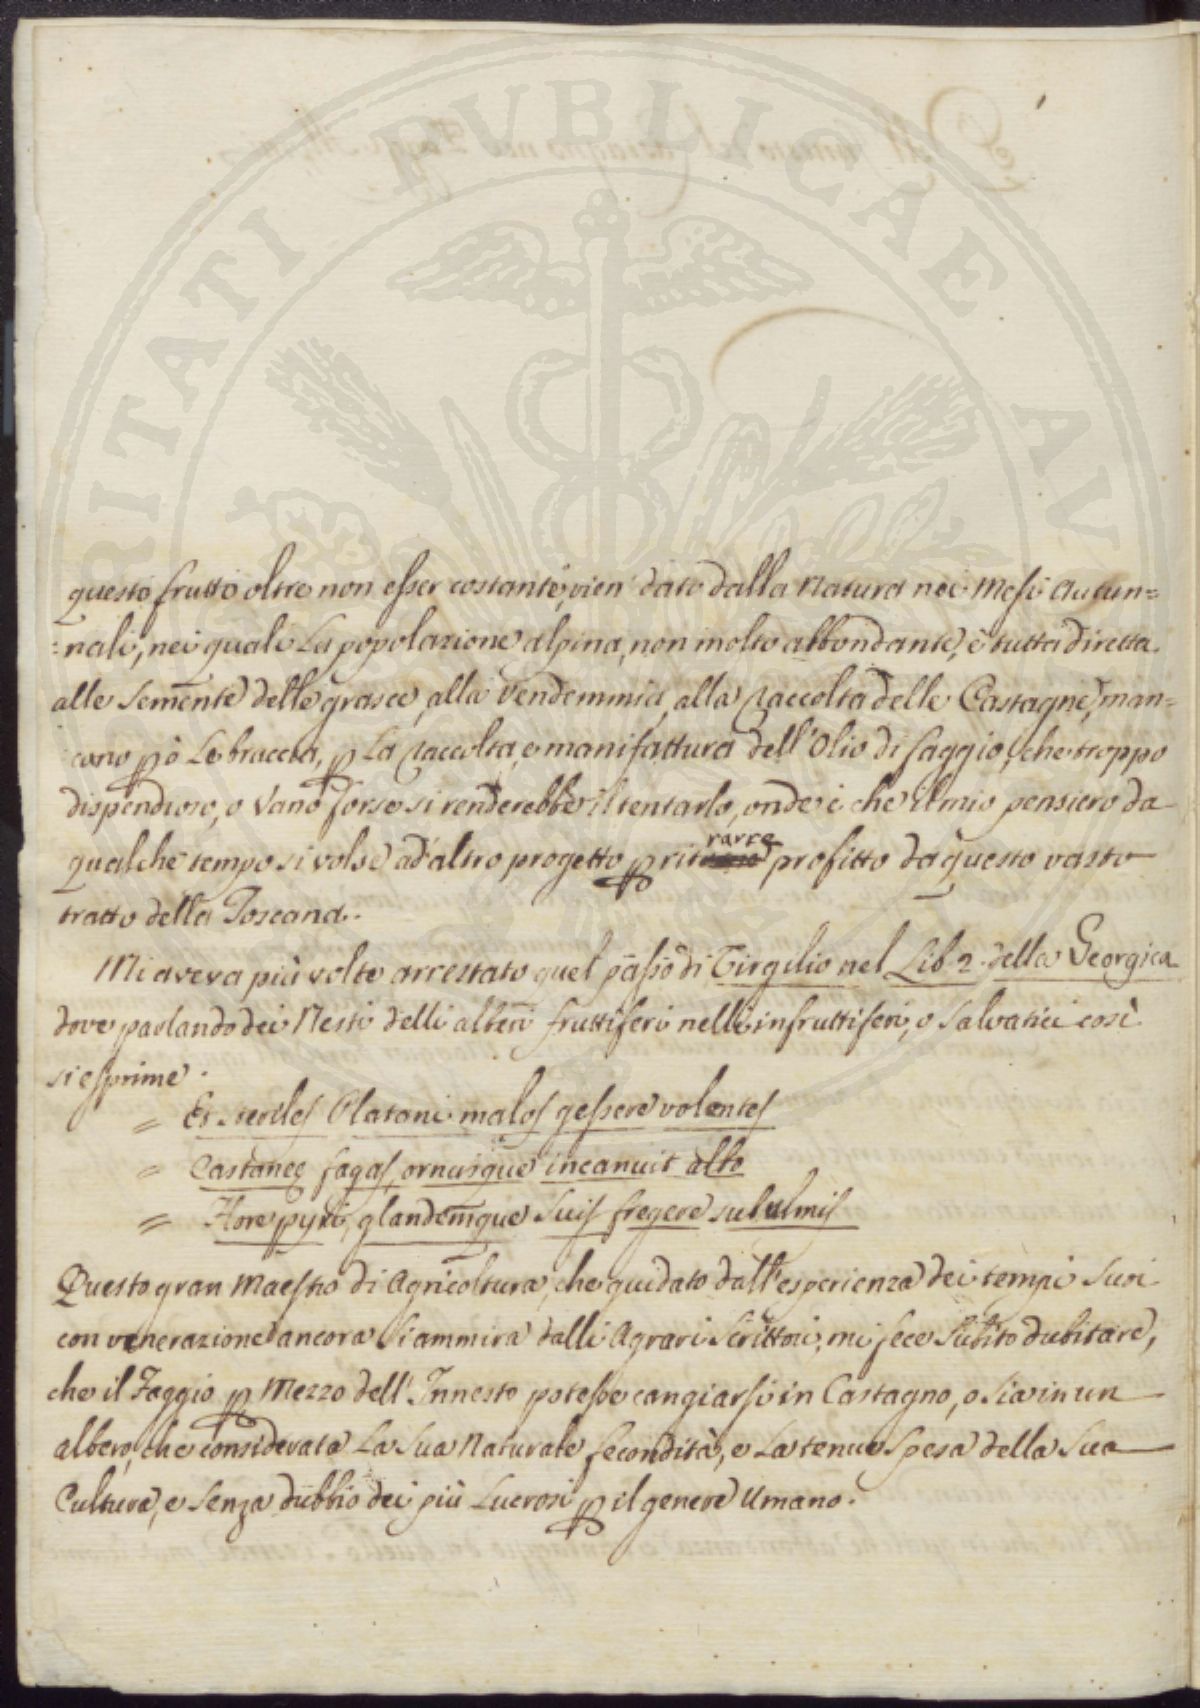 questo frutto oltre non esser costante, vien dato dalla Natura nei Mesi Autun=
=nali, nei quali La popolazione alpina, non molto abbondante, è tutta diretta
alle semente delle grasce, alla vendemmia, alla raccolta delle Castagne, man=
cano pò Le braccia, p La raccolta, e manifattura dell'Olio di faggio, che troppo
dispendioso, o Vano forse si renderebbe il tentarlo, onde è che il mio pensiero da
qualche tempo si volse ad altro progetto p ritrarre profitto da questo vasto
tratto della Toscana.
Mi aveva più volte arrestato quel passo di Virgilio nel Lib. 2. della Georgica
dove parlando dei Nesti delli alberi fruttiferi nelli infruttiferi, o Salvatici così
si esprime.
= Et steriles Platani malos gessere volentes
= Castaneę fagos, ornusque incanuit albo
= Flore pyri, glandemque Suis fregere sub ulmis
Questo gran Maestro di Agricoltura, che guidato dall'esperienza dei tempi Suoi
con venerazione ancora Si ammira dalli Agrari Scrittori, mi fece Subito dubitare,
che il Faggio p Mezzo dell'Innesto potesse cangiarsi in Castagno, o Sia in un
albero, che considerata La Sua Naturale fecondità, e La tenue Spesa della Sua
Cultura, e Senza dubbio dei più Lucrosi p il genere Umano.
RITATI PUBLICAE AU